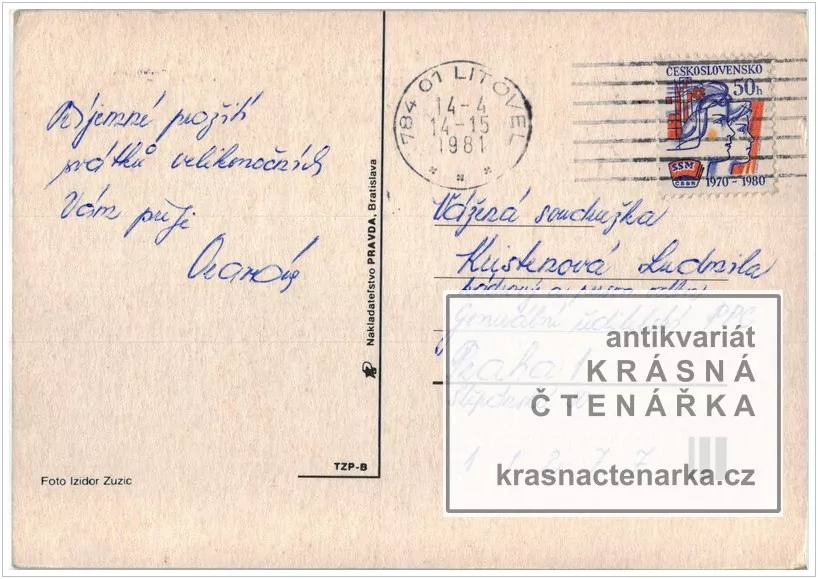 Příjemné prožití
svátků velikonočních
Vám přeje
Foto Izidor Zuzic
Nakladateľstvo PRAVDA, Bratislava
TZP-B
784 01 LITOVEL
14-4
14-15
1981
ČESKOSLOVENSKO
50h
SSM
ČSSR
1970 - 1980
Vážená soudružka
Ludmila
Generální ředitelství
Praha 1
antikvariát
KRÁSNÁ
ČTENÁŘKA
krasnactenarka.cz